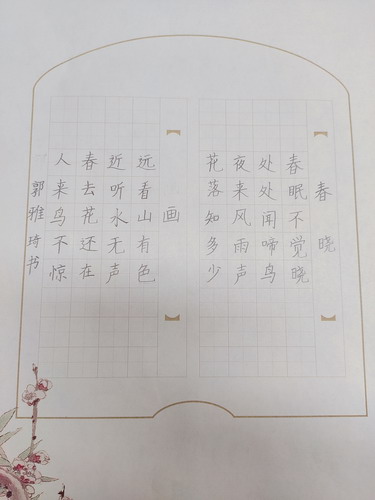 春晓
春眠不觉晓
处处闻啼鸟
夜来风雨声
花落知多少
画
远看山有色
近听水无声
春去花还在
人来鸟不惊
郭雅琦书